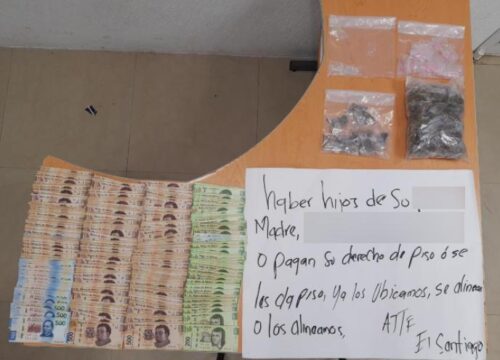 haber hijos de Su
Madre,
o pagan Su derecho de Piso ó se
les da piso, Ya los Ubicamos, se alinean
o los alineamos,
ATTE
El Santiago
500
500
500
200
200